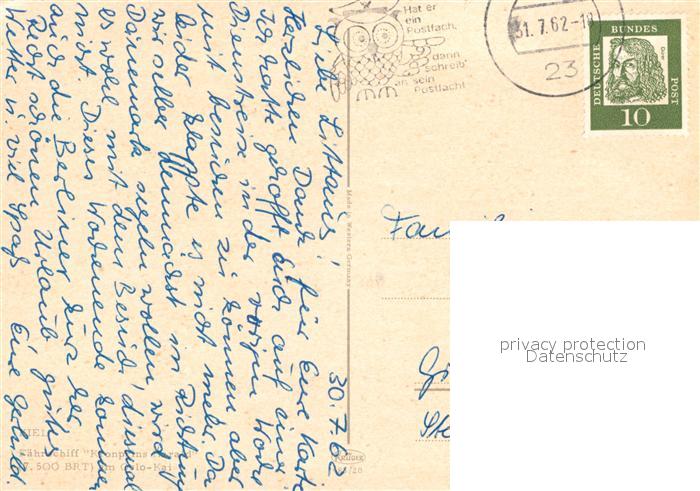 30.7.62
Liebe Littaus!
Herzlichen Dank für Eure Karte
Ich hatte gehofft Euch auf einer
Dienstreise in der vorigen Woche
mit besuchen zu können aber
leider klappte es nicht mehr. Da
wir selber demnächst in Richtung
Dänemark segeln wollen, wird
es wohl mit dem Besuch diesmal
nichts. Dieses Wochenende kommen
auch die Berliner kurz her
Recht schönen Urlaub gutes
Wetter u. viel Spaß Eure
KIEL
Fährschiff "Kronprins Harald"
(7.500 BRT) am Oslo-Kai
Made in Western Germany
KRÜGER
Hat er
ein
Postfach,
dann
schreib'
an sein
Postfach!
31.7.62-18
23
DEUTSCHE BUNDES POST
Dürer
10
Familie
privacy protection
Datenschutz